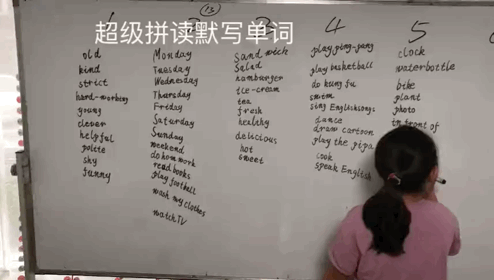 13
超级拼读默写单词
1
old
kind
strict
hard-working
young
clever
helpful
polite
shy
funny
2
Monday
Tuesday
Wednesday
Thursday
Friday
Saturday
Sunday
weekend
do homework
read books
play football
wash my clothes
watch TV
3
Sandwich
Salad
hamburger
ice-cream
tea
fresh
healthy
delicious
hot
sweet
4
play ping-pong
play basketball
do kung fu
swim
sing English songs
dance
draw cartoon
play the pipa
cook
speak English
5
clock
water bottle
bike
plant
photo
in front of